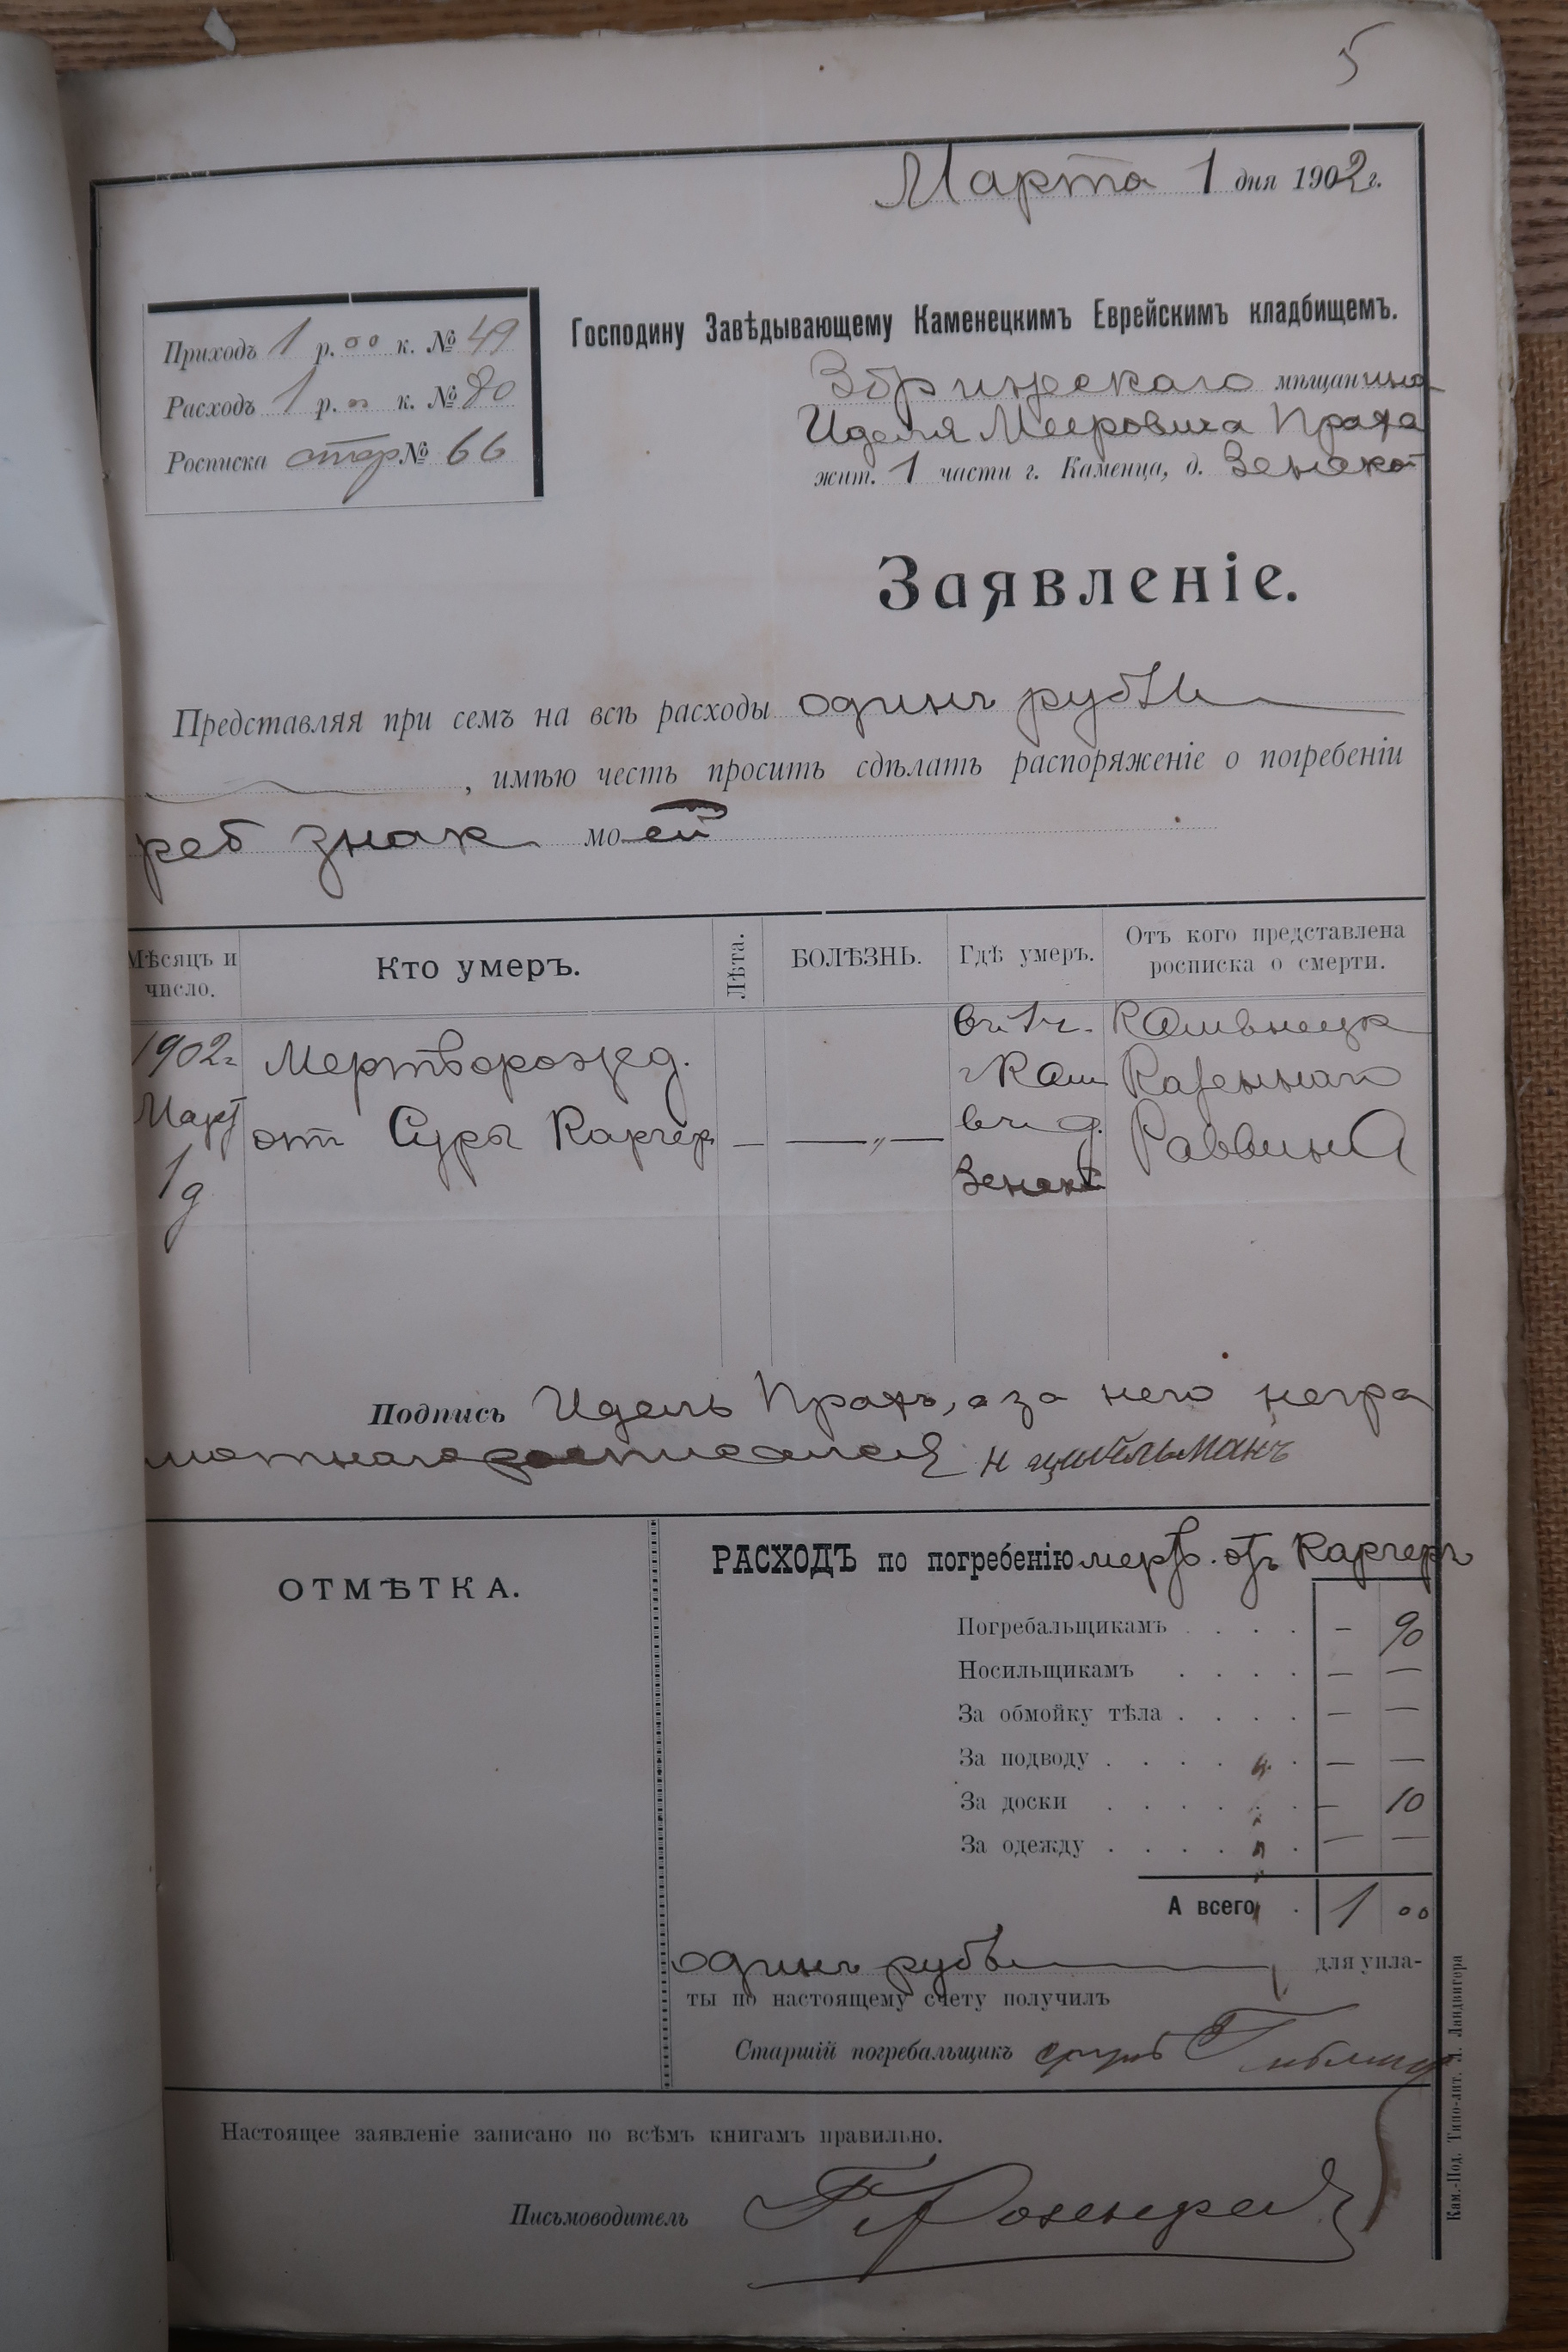 5
Марта 1 дня 1902 г.
Приходъ 1 р. 00 к. № 49
Расходъ 1 р. 00 к. № 80
Росписка № 66
Господину Завѣдывающему Каменецкимъ Еврейскимъ кладбищемъ.
Збрижскаго мѣщанина
Иделя Мееровича Праха
жит. 1 части г. Каменца, д.
Заявленіе.
Представляя при семъ на всѣ расходы одинъ рубль
, имѣю честь просить сдѣлать распоряженіе о погребеніи
реб знак моей
Мѣсяцъ и число.
Кто умеръ.
Лѣта.
БОЛѢЗНЬ.
Гдѣ умеръ.
Отъ кого представлена росписка о смерти.
1902г Март 1 д
Мертворожед.
от Суры Карчер
— — „ —
въ 1 ч.
г Кам
въ д.
Каменецк
Казеннаго
Раввина
Подпись Идель Прахъ, а за него негра
мотнаго росписался Н Цибельманъ
ОТМѢТКА.
РАСХОДЪ по погребенію мертв. отъ Карчеръ
Погребальщикамъ . . . . — 90
Носильщикамъ . . . . — —
За обмойку тѣла . . . . — —
За подводу . . . . . — —
За доски . . . . . — 10
За одежду . . . . . — —
А всего . 1 00
одинъ рубль для упла-
ты по настоящему счету получилъ
Старшій погребальщикъ
Настоящее заявленіе записано по всѣмъ книгамъ правильно.
Письмоводитель
Кам.-Под. Типо-лит. Л. Ландвигера